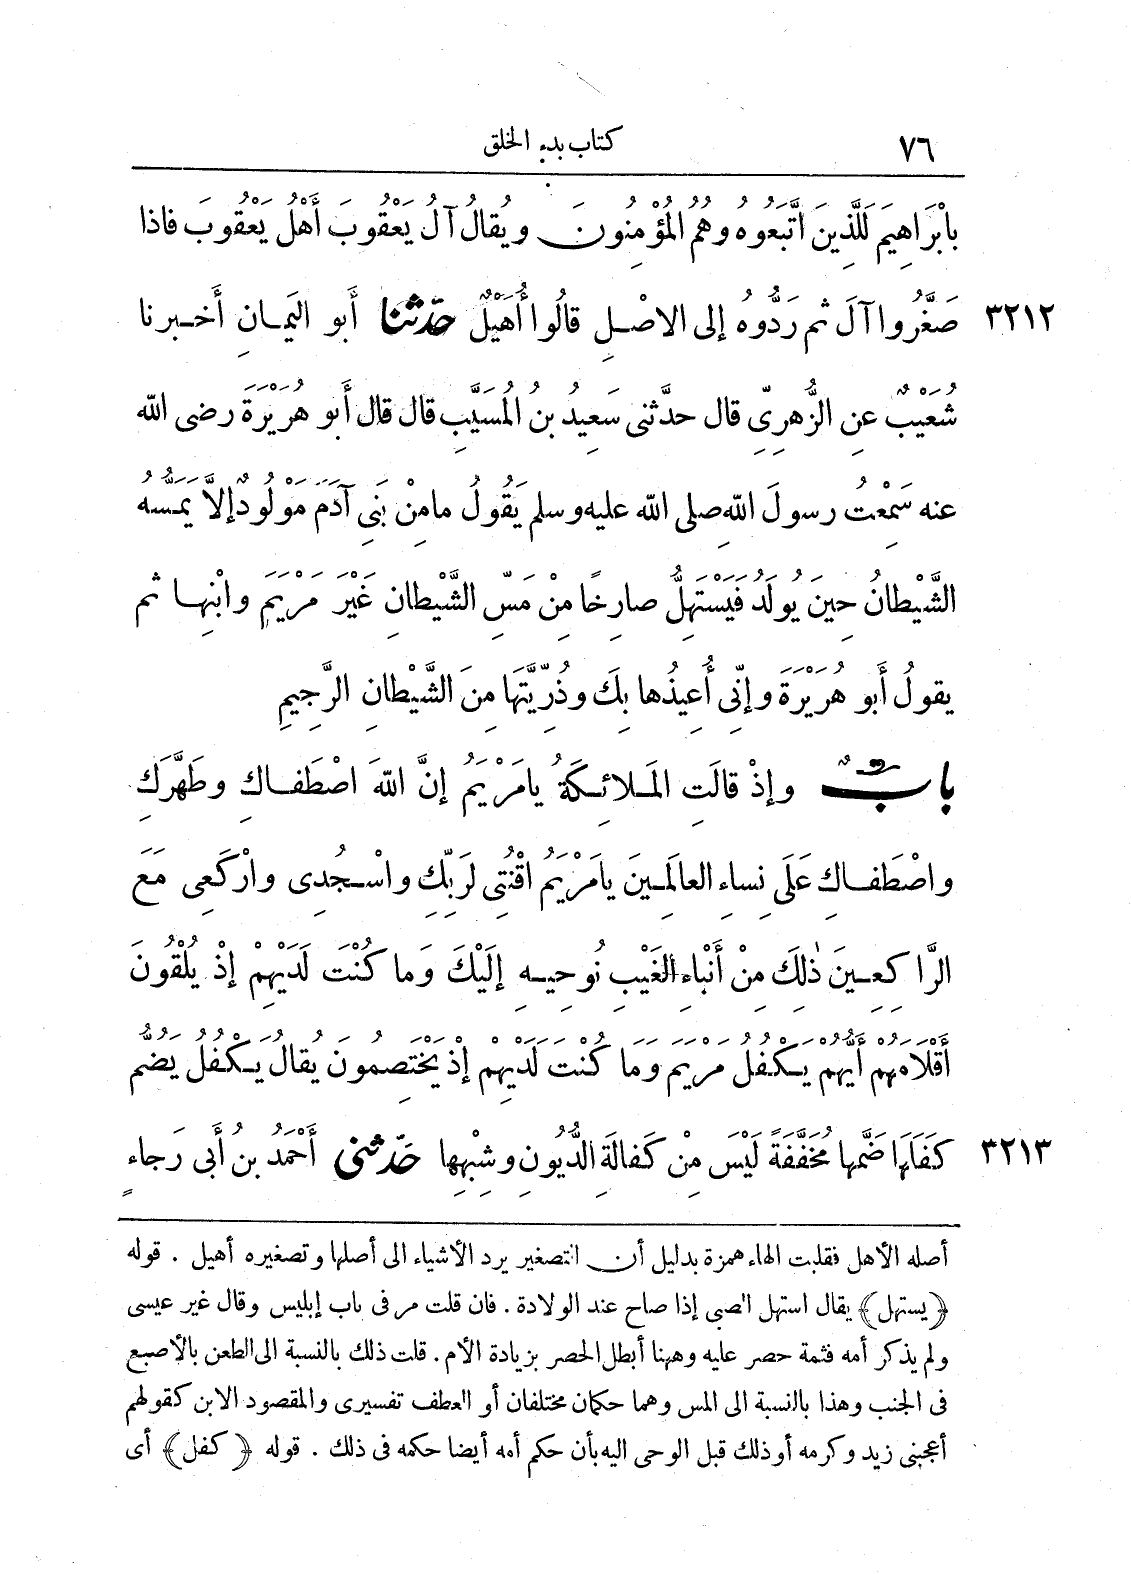 ٧٦ كتاب بدء الخلق
بِإبْرَاهِيمَ لَلَّذِينَ اتَّبَعُوهُ وهُمُ المُؤْمِنُونَ ويُقالُ آلُ يَعْقُوبَ أَهْلُ يَعْقُوبَ فاذا
٣٢١٢ صَغَّرُوا آلَ ثم رَدُّوهُ إلى الاصْلِ قالُوا أُهَيْلٌ حَدَّثَنا أبو اليَمانِ أخبرنا
شُعَيْبٌ عنِ الزُّهْرِيِّ قال حدَّثنى سَعِيدُ بنُ المُسَيَّبِ قال قال أبو هُرَيْرَةَ رضى الله
عنه سَمِعْتُ رسولَ اللهِ صلى الله عليه وسلم يَقُولُ ما مِنْ بَنِى آدَمَ مَوْلُودٌ إلاَّ يَمَسُّهُ
الشَّيْطانُ حِينَ يُولَدُ فَيَسْتَهِلُّ صارِخًا مِنْ مَسِّ الشَّيْطانِ غَيْرَ مَرْيَمَ وابْنِها ثم
يقولُ أبو هُرَيْرَةَ وإنِّى أُعِيذُها بِكَ وذُرِّيَّتَهَا مِنَ الشَّيْطانِ الرَّجِيمِ
بابٌ وإذْ قالَتِ المَلائِكَةُ يامَرْيَمُ إنَّ اللهَ اصْطَفاكِ وطَهَّرَكِ
واصْطَفاكِ عَلَى نِساءِ العالَمِينَ يامَرْيَمُ اقْنُتِى لِرَبِّكِ واسْجُدِى وارْكَعِى مَعَ
الرَّاكِعِينَ ذٰلِكَ مِنْ أَنْباءِ الغَيْبِ نُوحِيهِ إلَيْكَ وَما كُنْتَ لَدَيْهِمْ إذْ يُلْقُونَ
أَقْلاَمَهُمْ أَيُّهُمْ يَكْفُلُ مَرْيَمَ وَمَا كُنْتَ لَدَيْهِمْ إذْ يَخْتَصِمُونَ يُقالُ يَكْفُلُ يَضُمُّ
٣٢١٣ كَفَلَهَا ضَمَّها مُخَفَّفَةً لَيْسَ مِنْ كَفالَةِ الدُّيُونِ وشِبْهِها حَدَّثَنى أَحْمَدُ بنُ أبى رَجاءٍ
أصله الأهل فقلبت الهاء همزة بدليل أن التصغير يرد الأشياء الى أصلها وتصغيره أهيل . قوله
﴿يستهل﴾ يقال استهل الصبى إذا صاح عند الولادة . فان قلت مر فى باب إبليس وقال غير عيسى
ولم يذكر أمه فثمة حصر عليه وههنا أبطل الحصر بزيادة الأم . قلت ذلك بالنسبة الى الطعن بالأصبع
فى الجنب وهذا بالنسبة الى المس وهما حكمان مختلفان أو العطف تفسيرى والمقصود الابن كقولهم
أعجبنى زيد وكرمه أوذلك قبل الوحى اليه بأن حكم أمه أيضا حكمه فى ذلك . قوله ﴿كفل﴾ أى